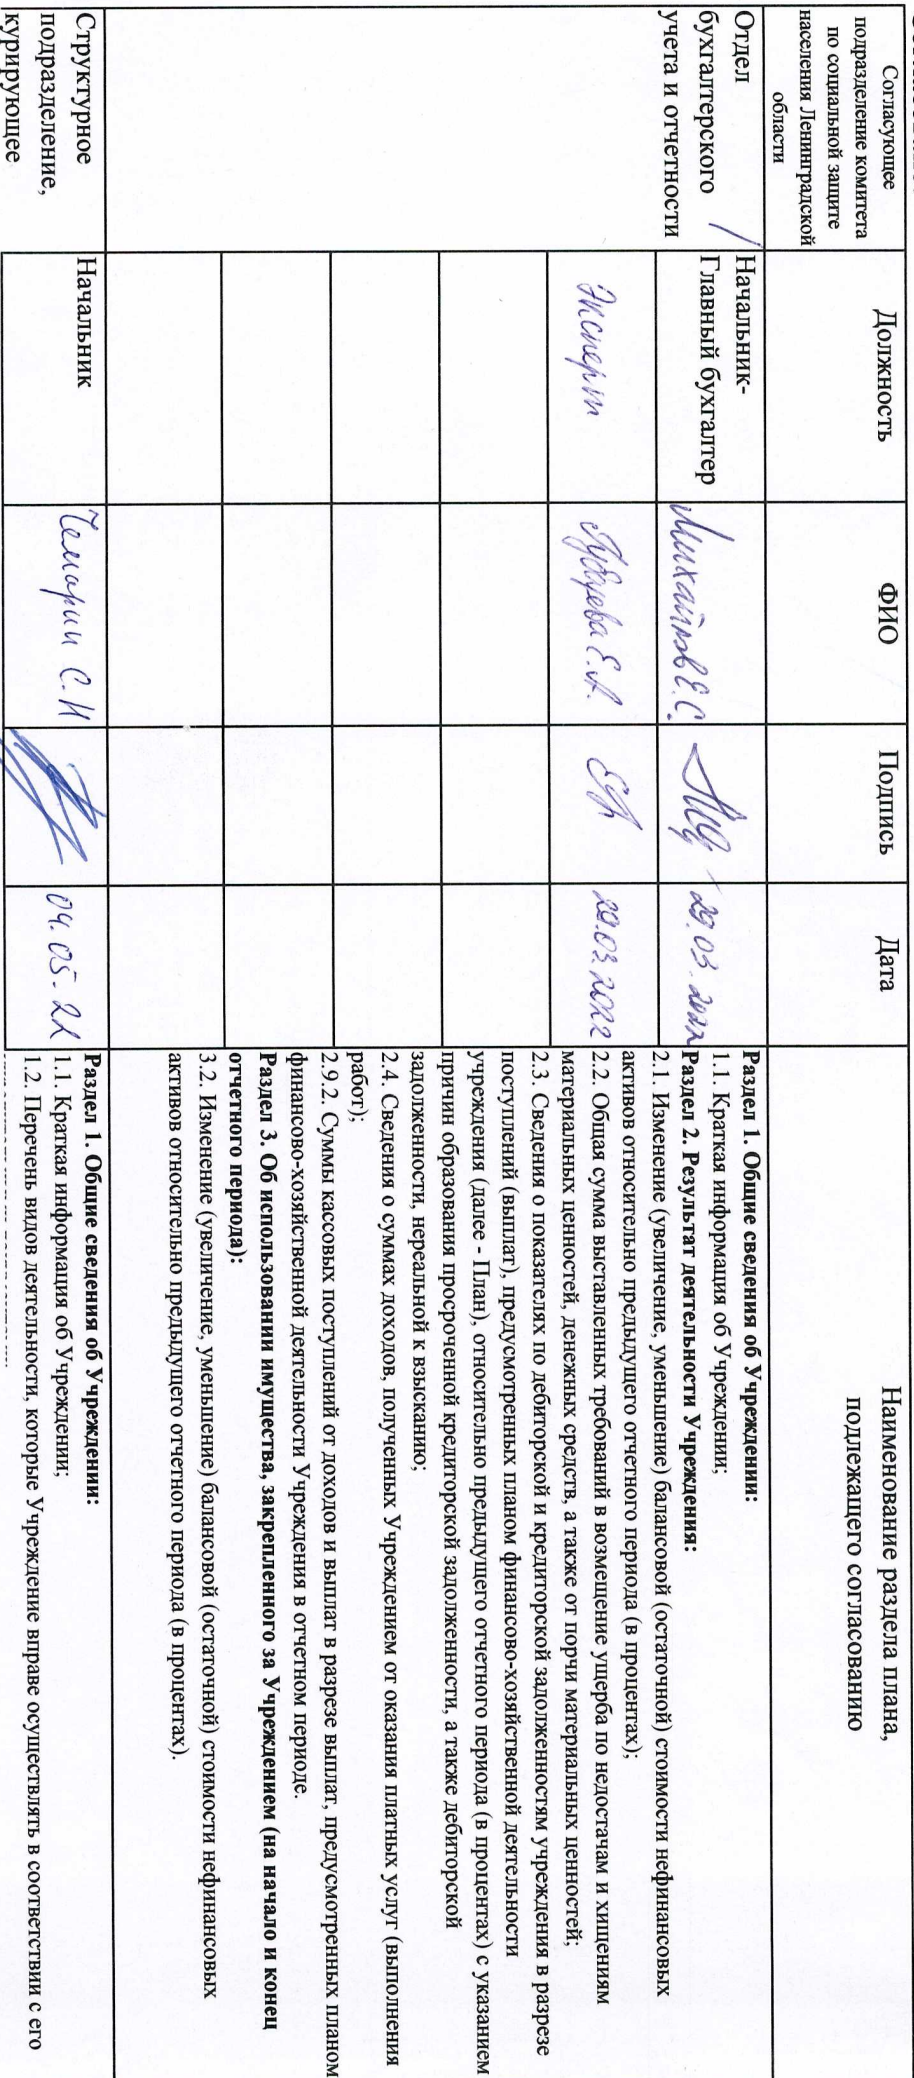 Согласующее
подразделение комитета
по социальной защите
населения Ленинградской
области
Должность
ФИО
Подпись
Дата
Наименование раздела плана,
подлежащего согласованию
Отдел
бухгалтерского
учета и отчетности
Начальник-
Главный бухгалтер
Михайлов Е.С.
29.03.2022
Эксперт
Е.А.
29.03.2022
Раздел 1. Общие сведения об Учреждении:
1.1. Краткая информация об Учреждении;
Раздел 2. Результат деятельности Учреждения:
2.1. Изменение (увеличение, уменьшение) балансовой (остаточной) стоимости нефинансовых
активов относительно предыдущего отчетного периода (в процентах);
2.2. Общая сумма выставленных требований в возмещение ущерба по недостачам и хищениям
материальных ценностей, денежных средств, а также от порчи материальных ценностей;
2.3. Сведения о показателях по дебиторской и кредиторской задолженностям учреждения в разрезе
поступлений (выплат), предусмотренных планом финансово-хозяйственной деятельности
учреждения (далее - План), относительно предыдущего отчетного периода (в процентах) с указанием
причин образования просроченной кредиторской задолженности, а также дебиторской
задолженности, нереальной к взысканию;
2.4. Сведения о суммах доходов, полученных Учреждением от оказания платных услуг (выполнения
работ);
2.9.2. Суммы кассовых поступлений от доходов и выплат в разрезе выплат, предусмотренных планом
финансово-хозяйственной деятельности Учреждения в отчетном периоде.
Раздел 3. Об использовании имущества, закрепленного за Учреждением (на начало и конец
отчетного периода):
3.2. Изменение (увеличение, уменьшение) балансовой (остаточной) стоимости нефинансовых
активов относительно предыдущего отчетного периода (в процентах).
Структурное
подразделение,
курирующее
Начальник
С.Н
04.05.22
Раздел 1. Общие сведения об Учреждении:
1.1. Краткая информация об Учреждении;
1.2. Перечень видов деятельности, которые Учреждение вправе осуществлять в соответствии с его